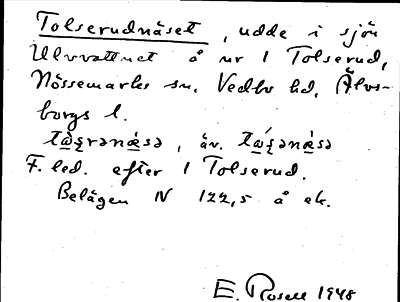 Tolserudnäset, udde i sjön
Ulvvattnet å nr 1 Tolserud,
Nössemarks sn. Vedbo hd, Älvs-
borgs l.
F. led. efter 1 Tolserud.
Belägen N 122,5 å ek.
E. Rosell 1948